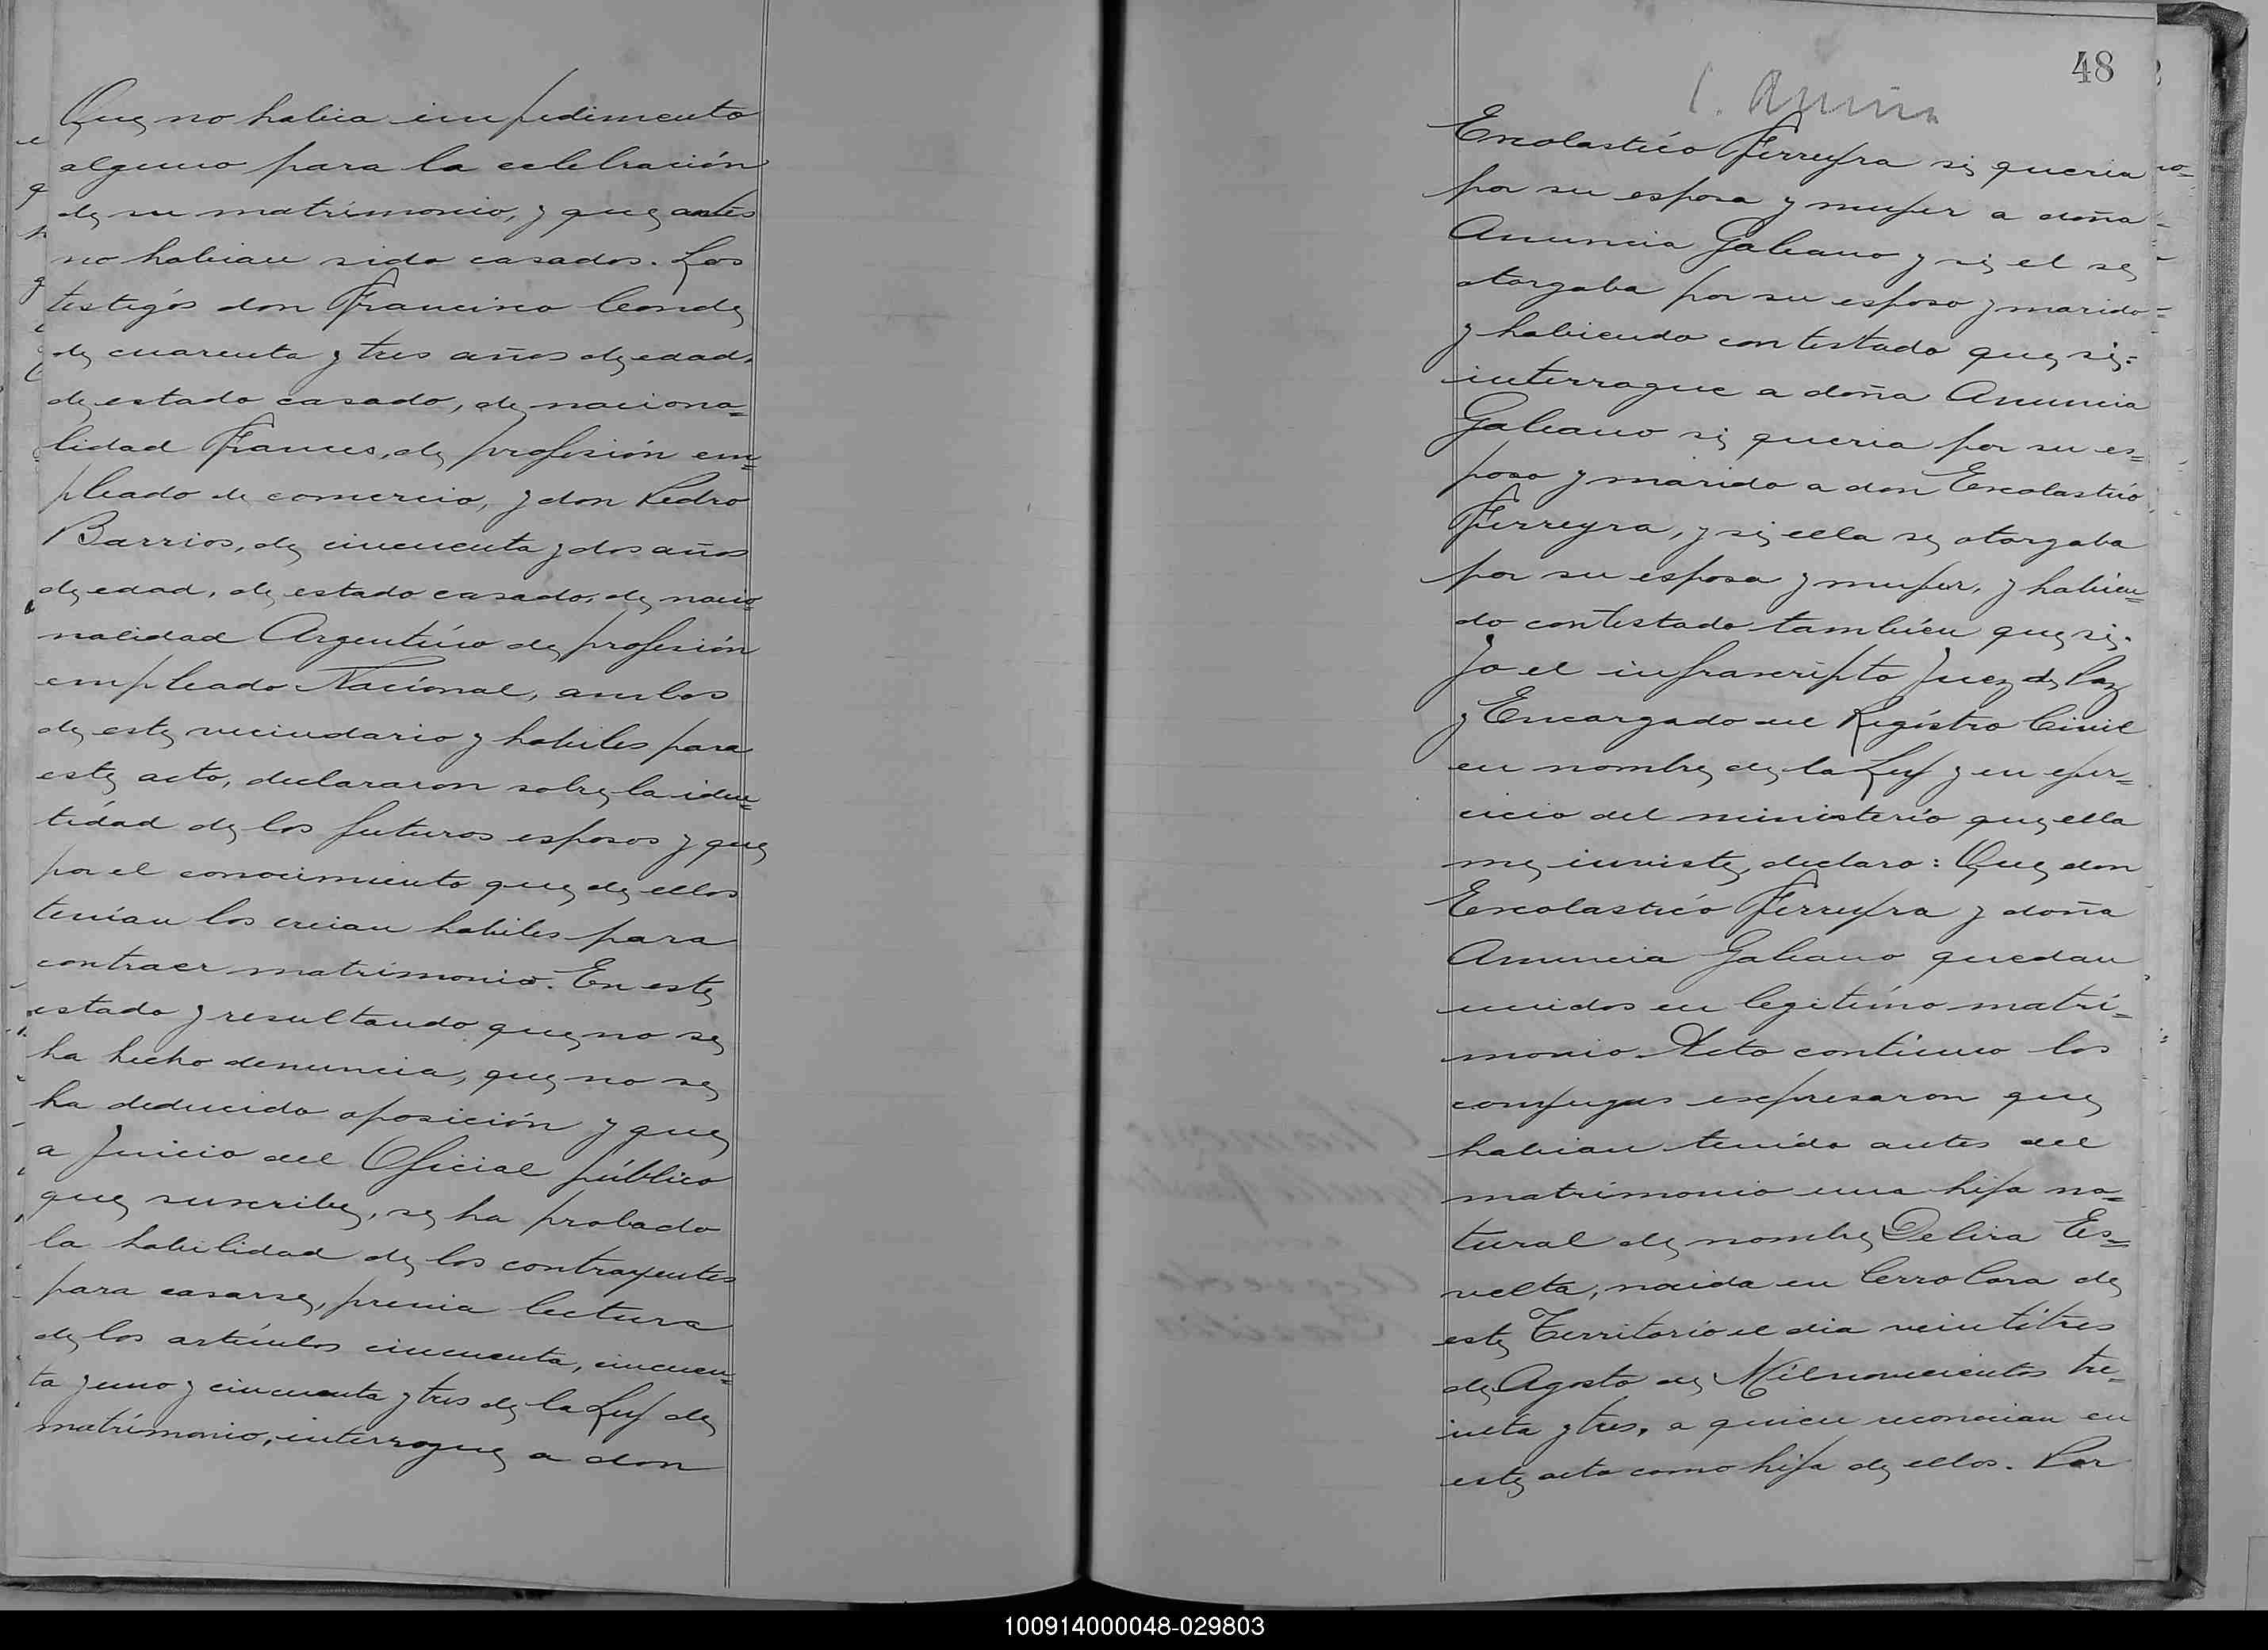 Que no habia impedimento
alguno para la celebración
de su matrimonio, y que antes
no habian sido casados. Los
testigos don Francisco Conde
de cuarenta y tres años de edad,
de estado casado, de naciona=
lidad Frances, de profesión em=
pleado de comercio, y don Pedro
Barrios, de cincuenta y dos años
de edad, de estado casado, de nacio=
nalidad Argentino de profesión
empleado Nacional, ambos
de este vecindario y habiles para
este acto, declararon sobre la iden=
tidad de los futuros esposos y que
por el conocimiento que de ellos
tenian los creian habiles para
contraer matrimonio. En este
estado y resultando que no se
ha hecho denuncia, que no se
ha deducido oposición y que
a Juicio del Oficial público
que suscribe, se ha probado
la habilidad de los contrayentes
para casarse, previa lectura
de los artículos cincuenta, cincuen=
ta y uno y cincuenta y tres de la Ley de
matrimonio, interrogue a don
48
Escolastico Ferreyra si queria
por su esposa y mujer a doña
Anuncia Galeano y si el se
otorgaba por su esposo y marido
y habiendo contestado que si.
interrogue a doña Anuncia
Galeano si queria por su es=
poso y marido a don Escolastico
Ferreyra, y si ella se otorgaba
por su esposa y mujer, y habien=
do contestado tambien que si.
Yo el infrascripto Juez de Paz
y Encargado del Registro Civil
en nombre de la Ley y en ejer=
cicio del ministerio que ella
me inviste, declaro: Que don
Escolastico Ferreyra y doña
Anuncia Galeano quedan
unidos en legitimo matri=
monio. Acto continuo los
conyuges expresaron que
habian tenido antes del
matrimonio una hija na=
tural de nombre Delira Es=
velta, nacida en Cerro Cora de
este Territorio el dia veintitres
de Agosto de Milnovecientos tre=
inta y tres, a quien reconocian en
este acto como hija de ellos. Por
100914000048-029803